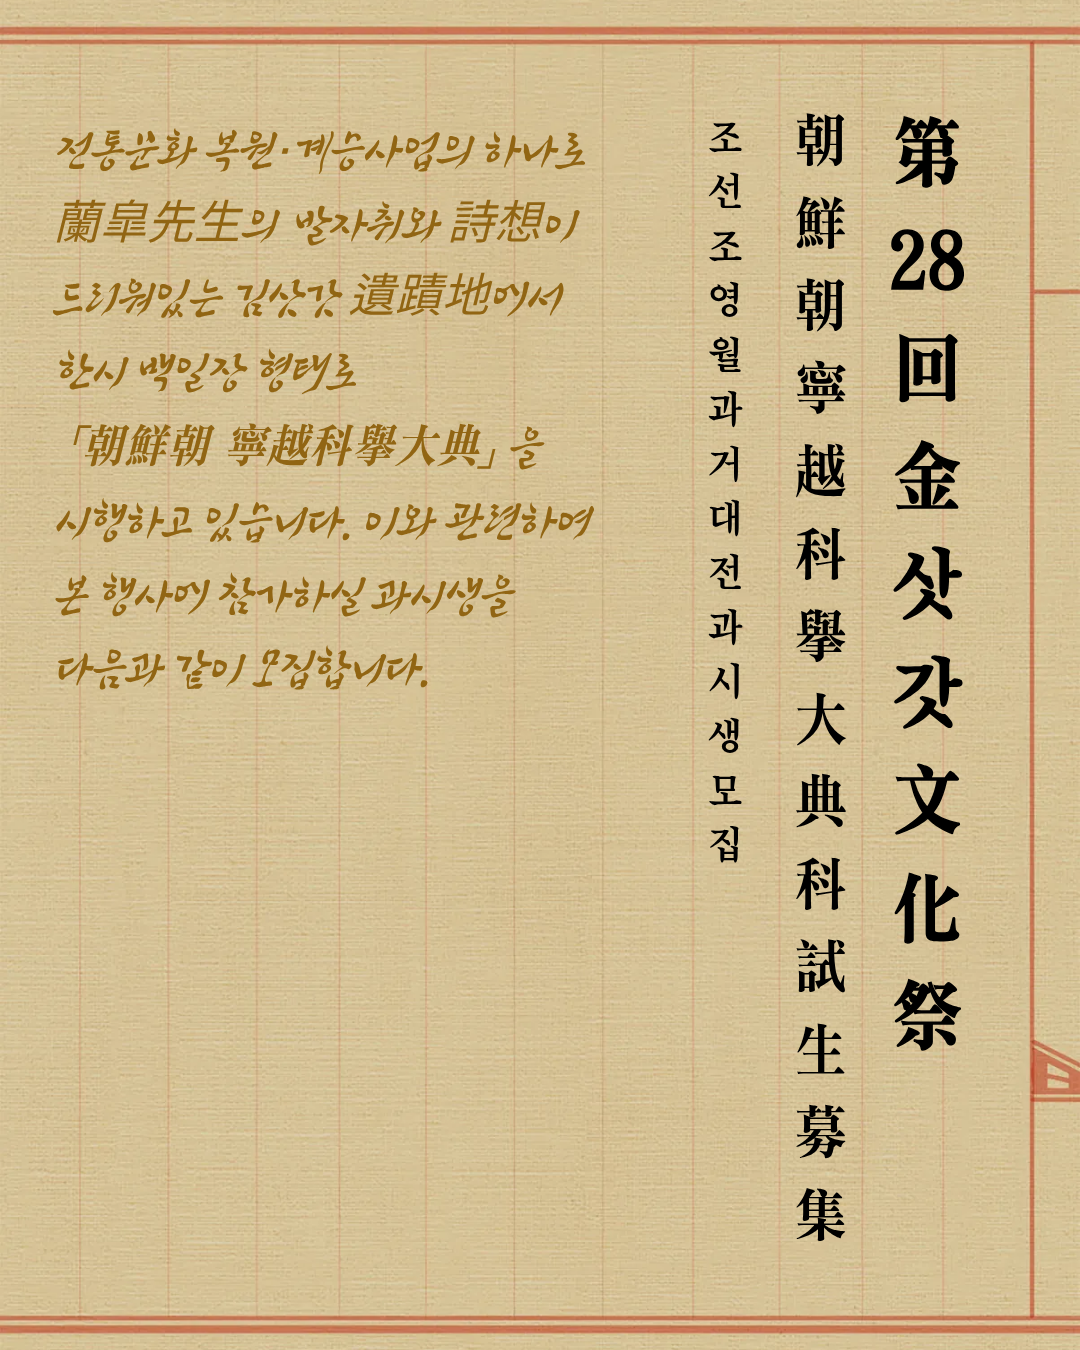 第28回金삿갓文化祭
朝鮮朝寧越科擧大典科試生募集
조선조영월과거대전과시생모집
전통문화 복원·계승사업의 하나로
蘭皐先生의 발자취와 詩想이
드리워있는 김삿갓 遺蹟地에서
한시 백일장 형태로
「朝鮮朝 寧越科擧大典」을
시행하고 있습니다. 이와 관련하여
본 행사에 참가하실 과시생을
다음과 같이 모집합니다.